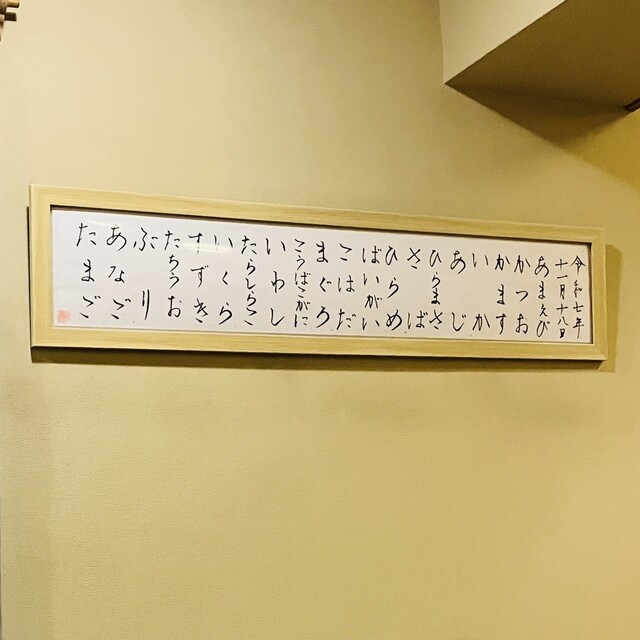 令和七年
十一月十八日
あまえび
かつお
かます
いか
あじ
ひらまさ
さば
ひらめ
ばいがい
こはだ
まぐろ
こうばこがに
いわし
たらしらこ
いくら
すずき
たちうお
ぶり
あなご
たまご